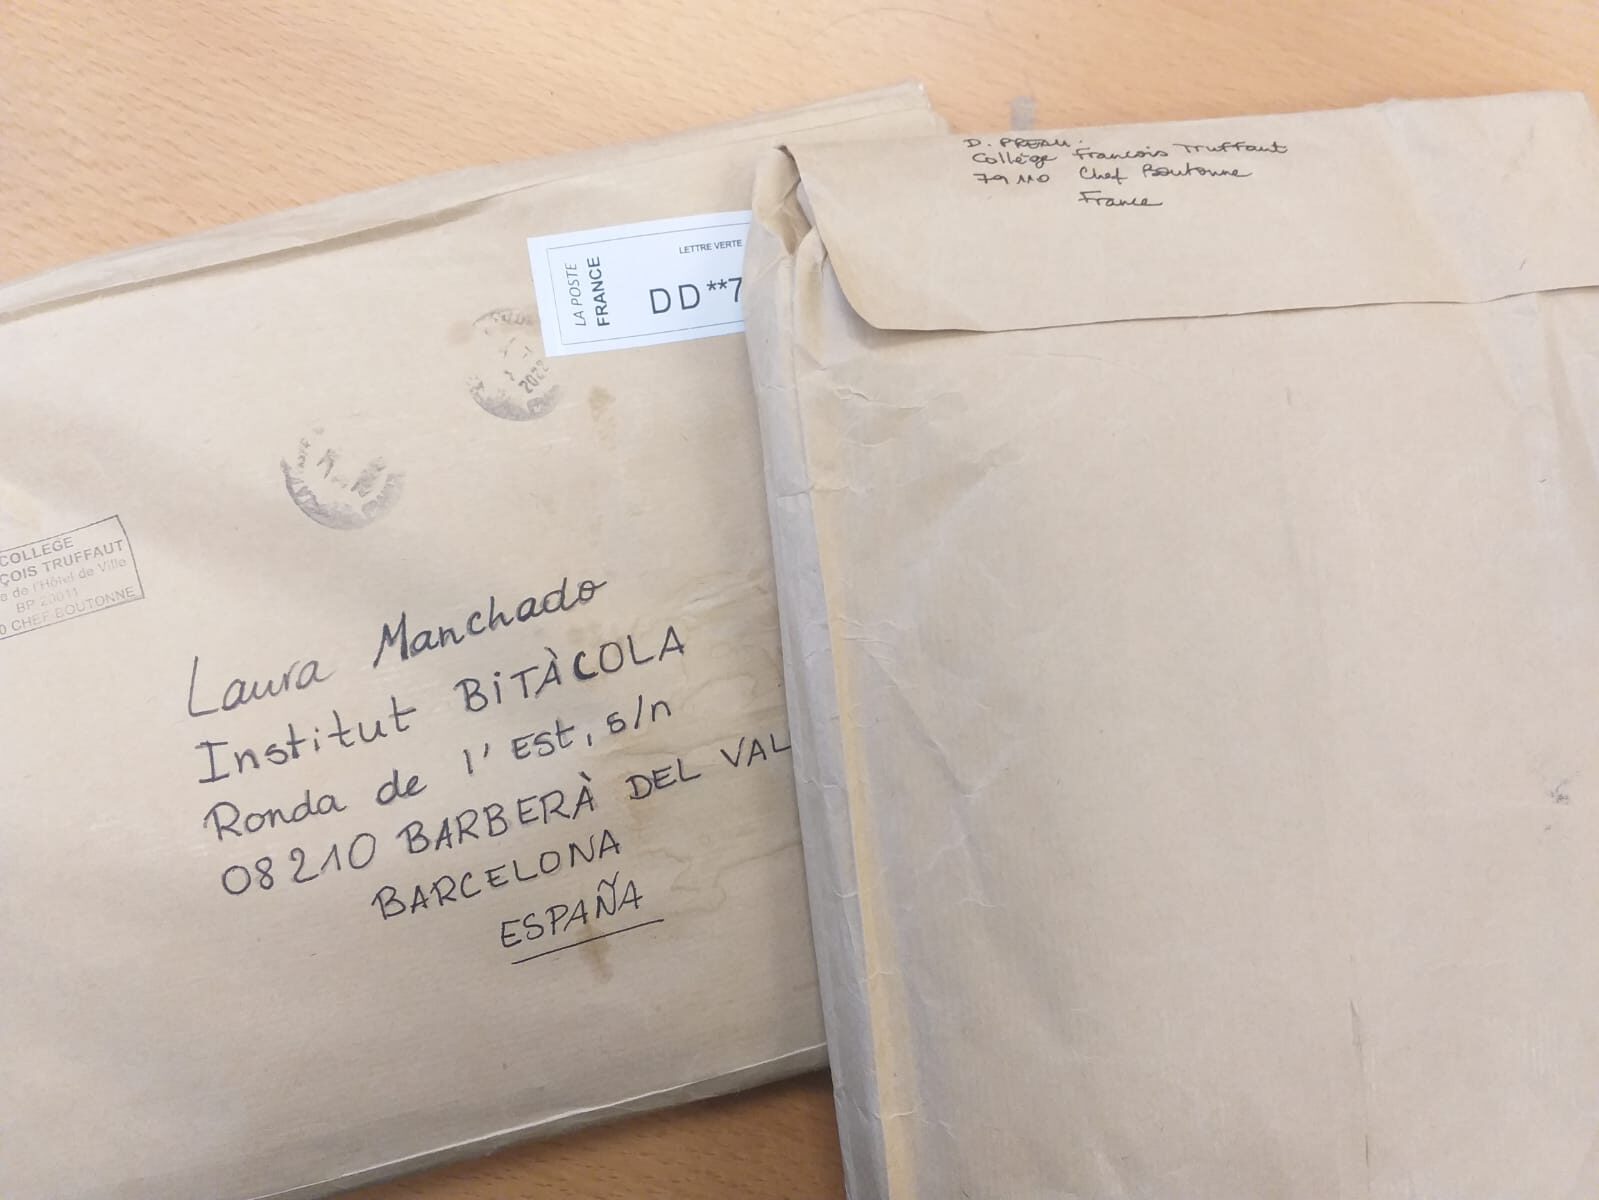 D. PREAU.
Collège François Truffaut
79110 Chef Boutonne
France
LA POSTE
FRANCE
LETTRE VERTE
DD**7
2022
COLLEGE
ÇOIS TRUFFAUT
e de l'Hôtel de Ville
BP 20011
0 CHEF BOUTONNE
Laura Manchado
Institut BiTÀCOLA
Ronda de l'Est, s/n
08210 BARBERÀ DEL VAL
BARCELONA
ESPAÑA